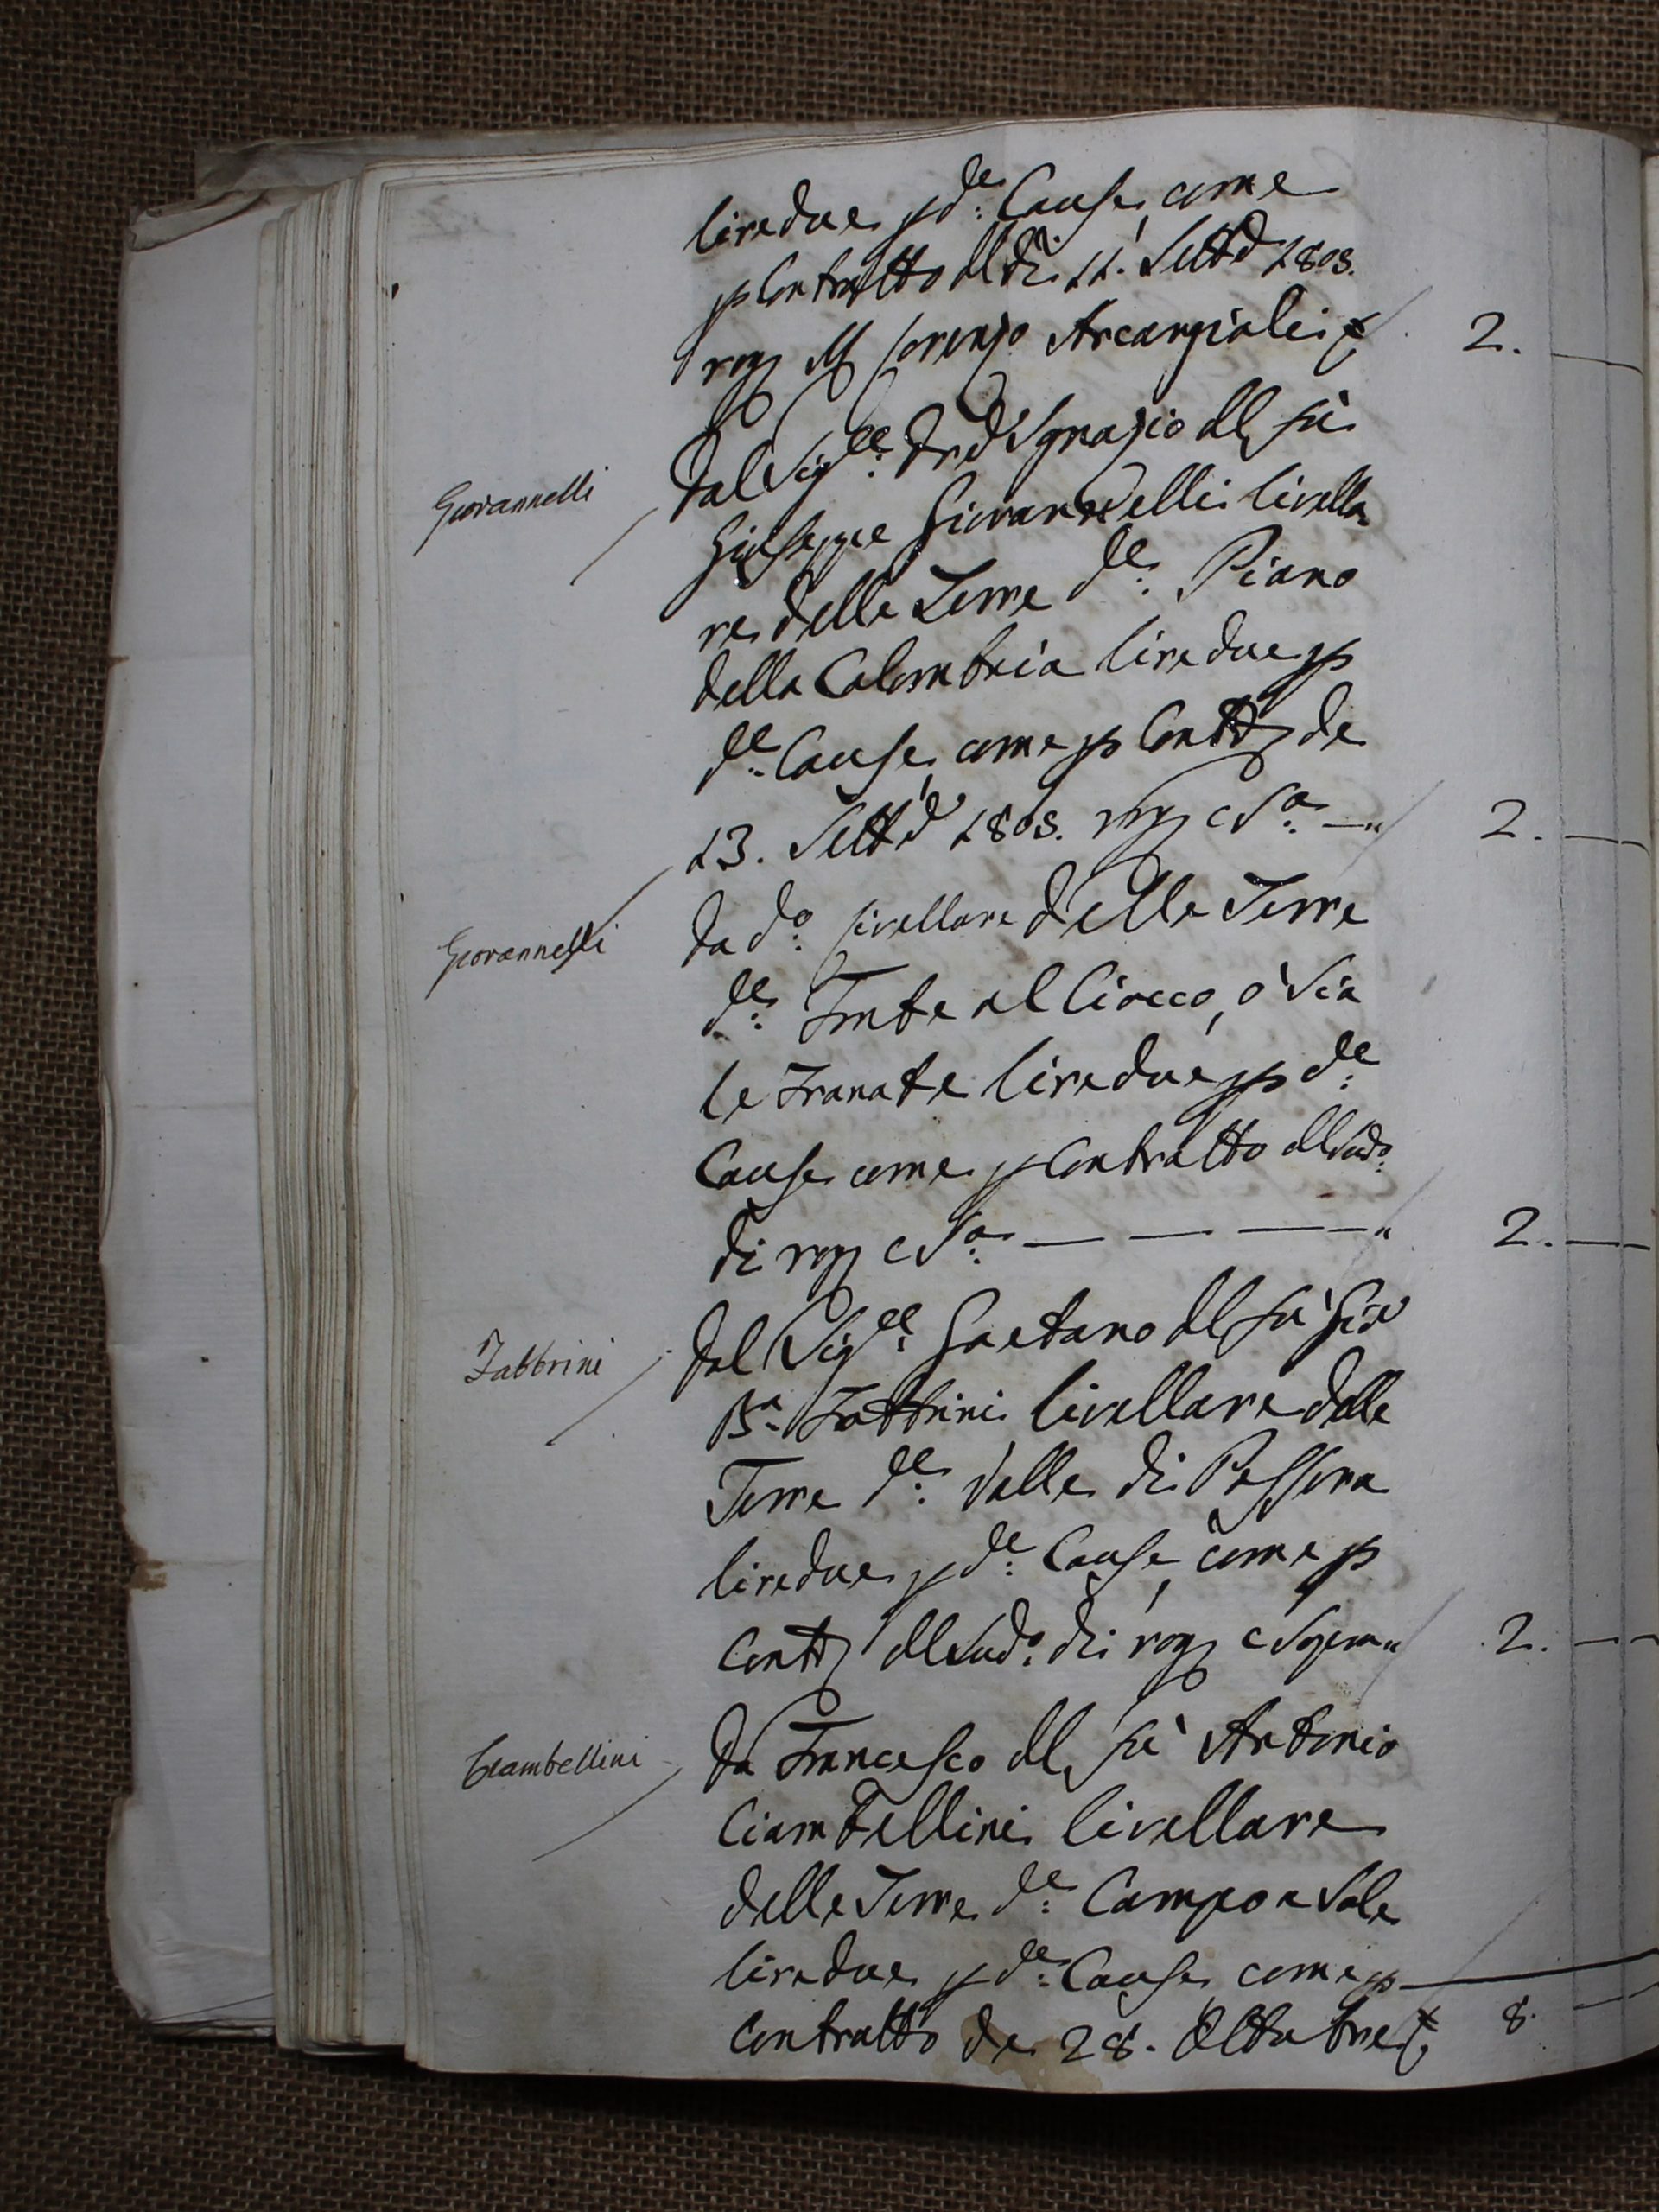 lire due p d:e Cause, come
p Contratto del dì 11. Sett:e 1803.
rog M Lorenzo Arcangioli £ 2.
Giovannelli
Dal Sig:re D:r Ignazio del fù
Giuseppe Giovannelli livella
re delle Terre d:e Piano
della Colombaia lire due p
d:e Cause, come p Contt de
13. Sett:e 1803. rog c S:a — " 2.
Giovannelli
Da d:o livellare delle Terre
d:e Fonte al Ciocco, o Sia
le Franate lire due p d:e
Cause come p Contratto del Sud:o
dì rog c S:a — — — " 2.
Fabbrini
Dal Sig:re Gaetano del fù Gio
B:a Fabbrini livellare delle
Terre d:e Valle di Passera
lire due p d:e Cause, come p
Contt del Sud:o dì rog c Sopra " 2.
Ciambellini
Da Francesco del fù Antonio
Ciambellini livellare
delle Terre d:e Campo a Sole
lire due p d:e Cause come p
Contratto de 28. Ottobre £ 8.